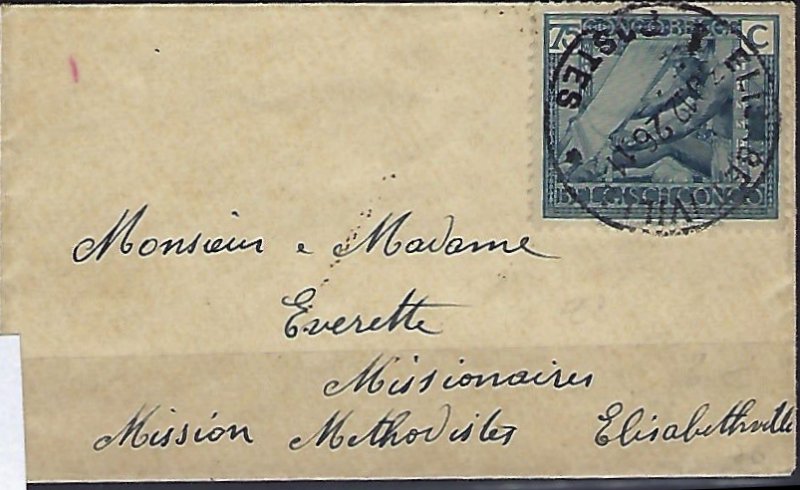 75 CONGO BELGE C
BELGISCH CONGO
ELISABETHVILLE
POSTES
Monsieur e Madame
Everette
Missionaires
Mission Methodistes Elisabethville